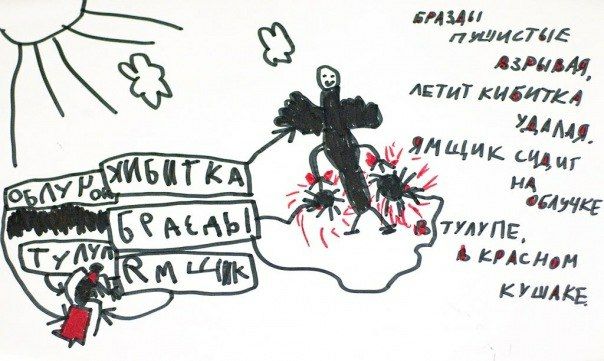 ОБЛУЧОК
КИБИТКА
БРАЗДЫ
ТУЛУП
ЯМЩИК
БРАЗДЫ
ПУШИСТЫЕ
ВЗРЫВАЯ,
ЛЕТИТ КИБИТКА
УДАЛАЯ.
ЯМЩИК СИДИТ
НА
ОБЛУЧКЕ
В ТУЛУПЕ,
В КРАСНОМ
КУШАКЕ.